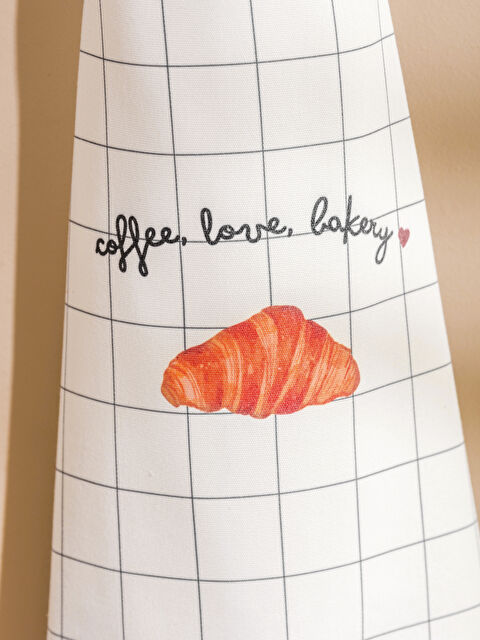 coffee, love, bakery